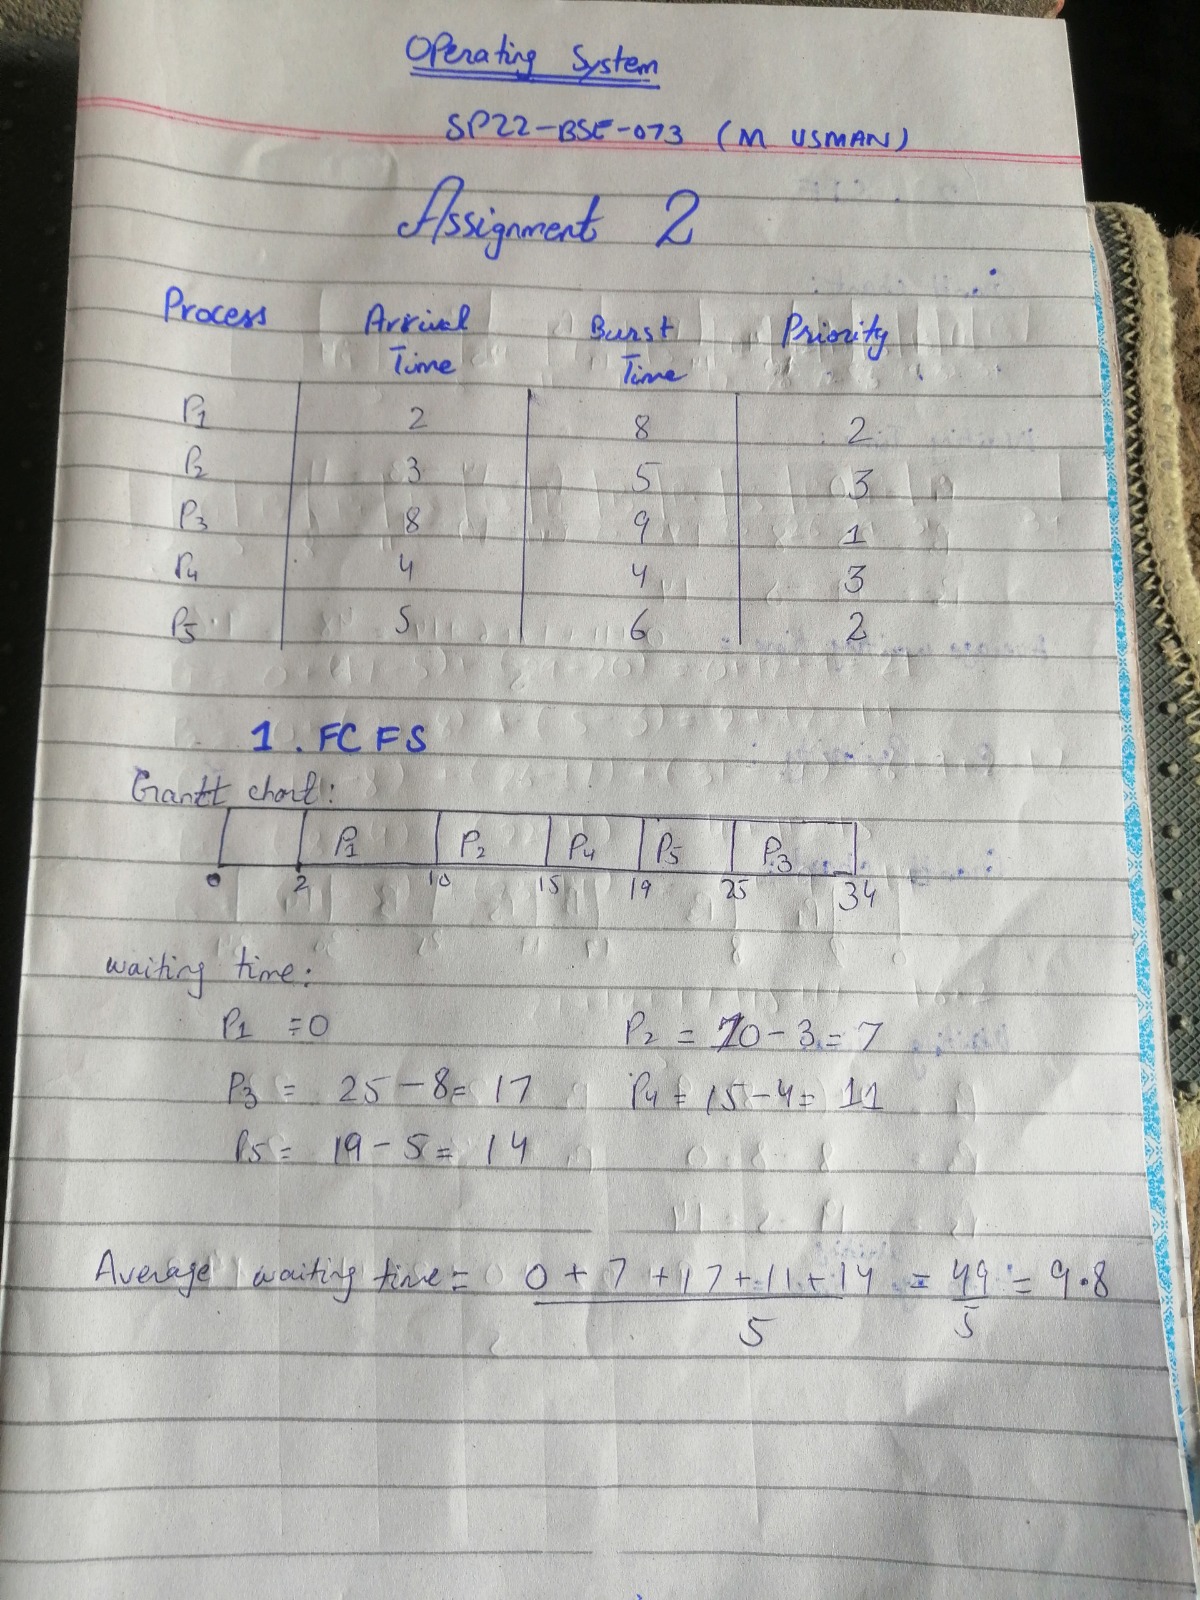 Operating System
SP22-BSE-073 (M USMAN)
Assignment 2
Process Arrival Time Burst Time Priority
P1 2 8 2
P2 3 5 3
P3 8 9 1
P4 4 4 3
P5 5 6 2
1. FCFS
Gantt chart:
P1 P2 P4 P5 P3
0 2 10 15 19 25 34
waiting time:
P1 = 0 P2 = 10 - 3 = 7
P3 = 25 - 8 = 17 P4 = 15 - 4 = 11
P5 = 19 - 5 = 14
Average waiting time = 0 + 7 + 17 + 11 + 14 = 49 = 9.8
5 5